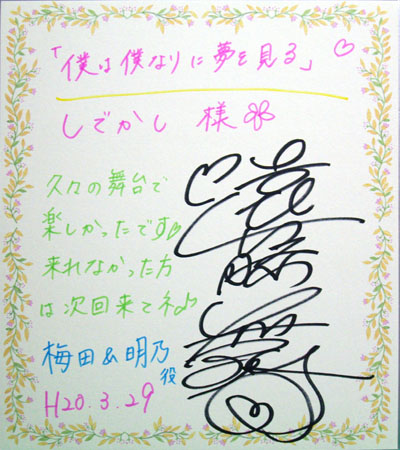 「僕は僕なりに夢を見る」♡
しでかし 様
久々の舞台で
楽しかったです♡
来れなかった方
は次回来てネ♪
梅田&明乃
役
H20.3.29